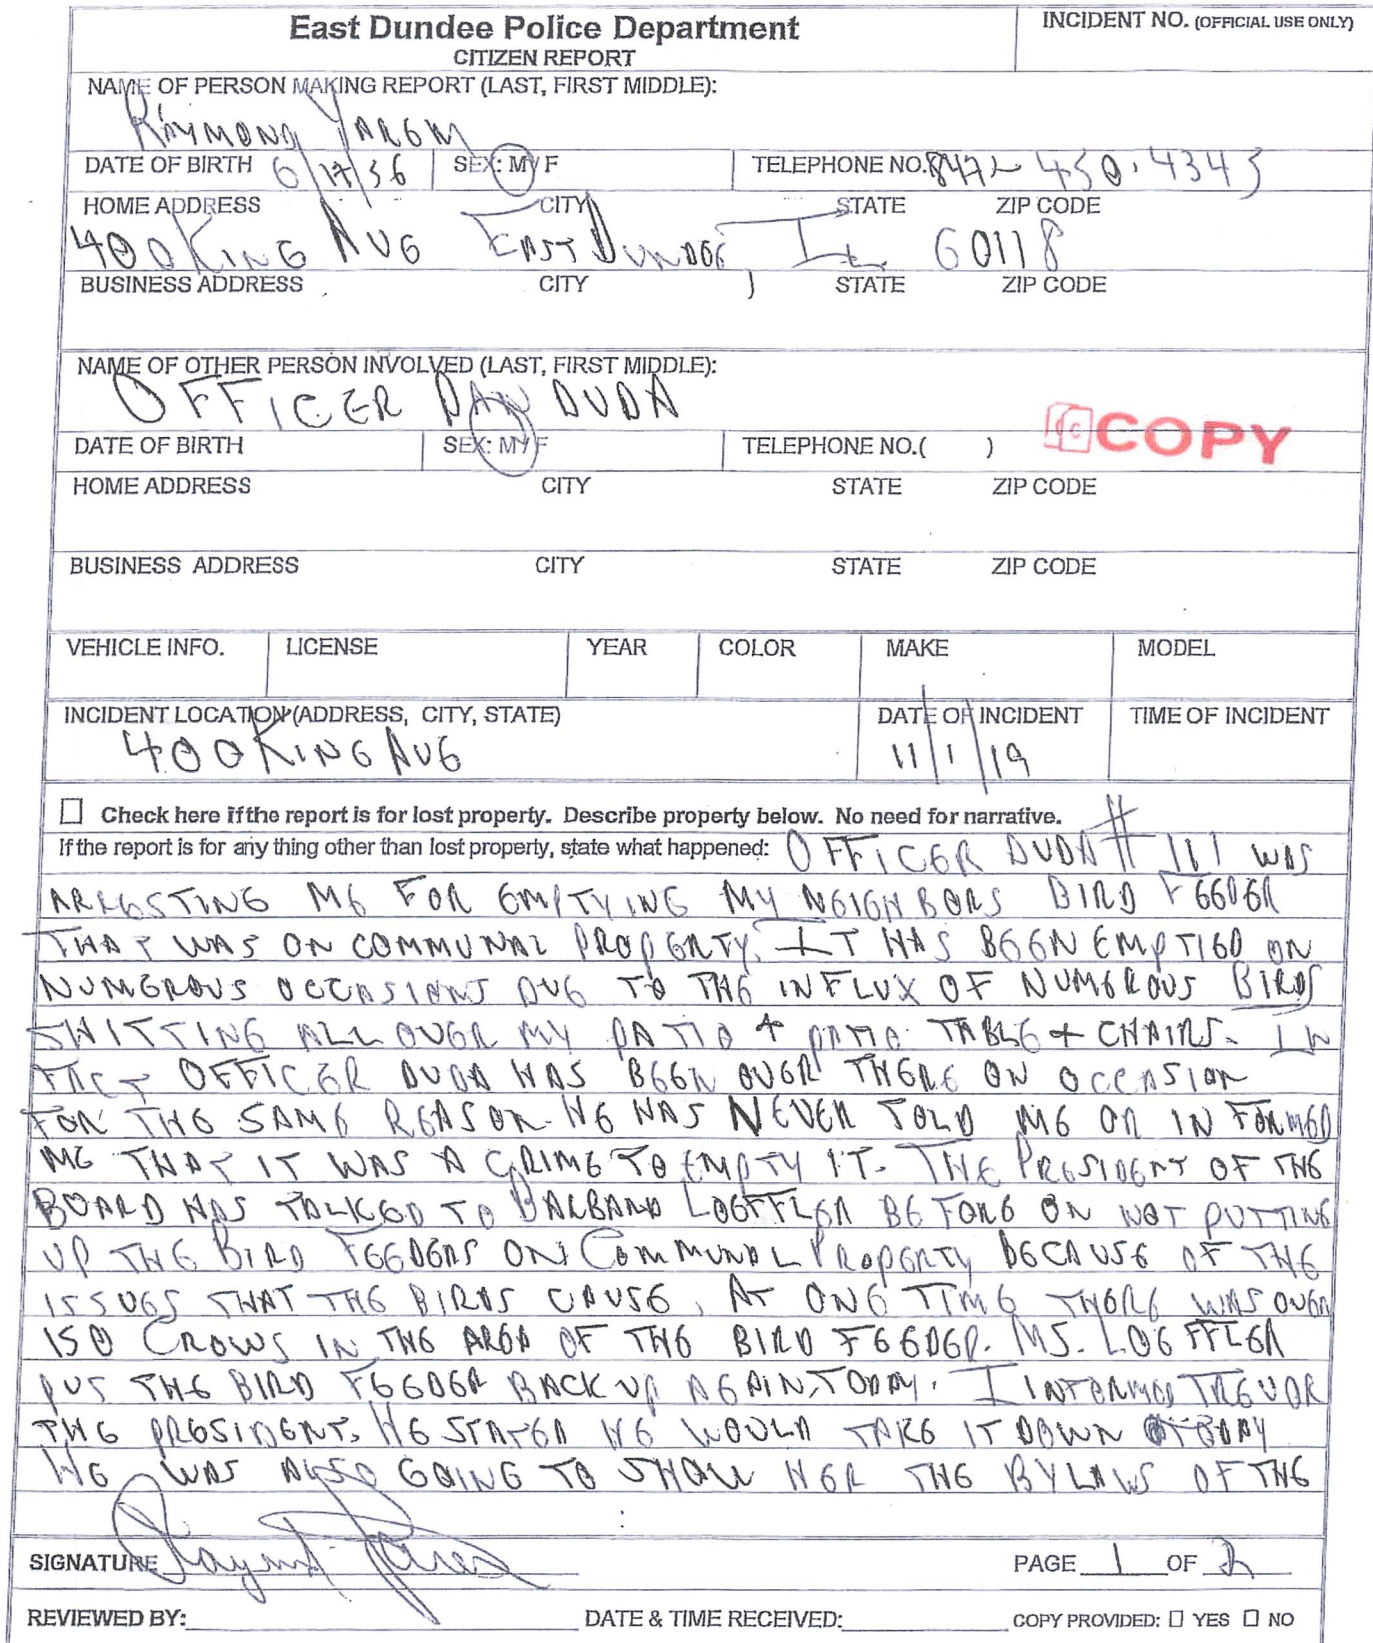 East Dundee Police Department
CITIZEN REPORT
INCIDENT NO. (OFFICIAL USE ONLY)
NAME OF PERSON MAKING REPORT (LAST, FIRST MIDDLE):
RAYMOND
DATE OF BIRTH 6/17/56 SEX: M/F TELEPHONE NO. 847-450-4345
HOME ADDRESS CITY STATE ZIP CODE
400 KING AVE EAST DUNDEE, IL 60118
BUSINESS ADDRESS CITY STATE ZIP CODE
NAME OF OTHER PERSON INVOLVED (LAST, FIRST MIDDLE):
OFFICER DAN DUDA
COPY
DATE OF BIRTH SEX: M/F TELEPHONE NO.( )
HOME ADDRESS CITY STATE ZIP CODE
BUSINESS ADDRESS CITY STATE ZIP CODE
VEHICLE INFO. LICENSE YEAR COLOR MAKE MODEL
INCIDENT LOCATION (ADDRESS, CITY, STATE) DATE OF INCIDENT TIME OF INCIDENT
400 KING AVE 11/1/19
☐ Check here if the report is for lost property. Describe property below. No need for narrative.
If the report is for any thing other than lost property, state what happened: OFFICER DUDA # 111 WAS
ARRESTING ME FOR EMPTYING MY NEIGHBORS BIRD FEEDER
THAT WAS ON COMMUNAL PROPERTY. IT HAS BEEN EMPTIED ON
NUMEROUS OCCASIONS DUE TO THE INFLUX OF NUMEROUS BIRDS
SHITTING ALL OVER MY PATIO + PATIO TABLE + CHAIRS. IN
FACT OFFICER DUDA HAS BEEN OVER THERE ON OCCASION
FOR THE SAME REASON. HE HAS NEVER TOLD ME OR INFORMED
ME THAT IT WAS A CRIME TO EMPTY IT. THE PRESIDENT OF THE
BOARD HAS TALKED TO BARBARA LOEFFLER BEFORE ON NOT PUTTING
UP THE BIRD FEEDERS ON COMMUNAL PROPERTY BECAUSE OF THE
ISSUES THAT THE BIRDS CAUSE. AT ONE TIME THERE WAS OVER
150 CROWS IN THE AREA OF THE BIRD FEEDER. MS. LOEFFLER
PUT THE BIRD FEEDER BACK UP AGAIN, TODAY. I INFORMED TREVOR
THE PRESIDENT. HE STATED HE WOULD TAKE IT DOWN TODAY
HE WAS ALSO GOING TO SHOW HER THE BYLAWS OF THE
SIGNATURE PAGE 1 OF 2
REVIEWED BY: DATE & TIME RECEIVED: COPY PROVIDED: ☐ YES ☐ NO